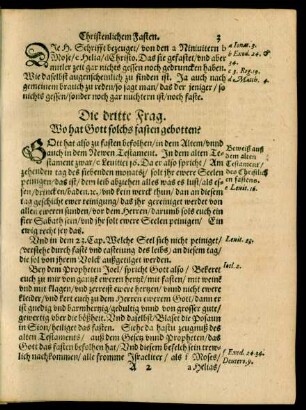 Christenlichem Fasten. 3
DJe H. Schrifft bezeuget / von den a Niniuitern b
Moyse / c Helia / d Christo. Das sie gefastet / vnd aber
mitler zeit gar nichts gessen noch gedruncken haben.
Wie daselbst augenscheinlich zu finden ist. Ja auch nach
gemeinem brauch zu reden / so sagt man / das der jeniger / so
nichts gessen / sonder noch gar nüchtern ist / noch faste.
a Ionæ. 3.
b Exod. 24. &
34.
c 3. Reg. 19.
d Matth. 4.
Die dritte Frag.
Wo hat Gott solchs fasten gebotten?
GOtt hat also zu fasten befolhen / in dem Alten / vnnd
auch in dem Newen Testament. In dem alten Te-
stament zwar / e Leuitici 16. Da er also spricht / Am
zehenden tag des siebenden monats / solt ihr ewere Seelen
peinigen / das ist / dem leib abziehen alles was es lust / als es-
sen / trincken baden. &c. vnd kein werck thun / dan an diesem
tag geschicht ewer reinigung / das ihr gereiniget werdet von
allen eweren sünden / vor dem Herren / darumb sols euch ein
ster Sabath sein / vnd ihr solt ewere Seelen peinigen / Ein
ewig recht sey das.
Beweiß auß
dem alten
Testament /
des Christlich
en fastens.
e Leuit. 16.
Vnd in dem 23. Cap. Welche Seel sich nicht peiniget /
verstehe durch fasten vnd casteiung des leibs) an diesem tag /
die sol von jhrem Volck außgetilget werden.
Leuit. 23.
Bey dem Propheten Joel / spricht Gott also / Bekeret
euch zu mir von gantzem ewerm hertz / mit fasten / mit weinen
vnd mit klagen / vnd zerreist ewere hertzen / vnnd nicht ewere
kleider / vnd kert euch zu dem Herren ewerem Gott / dann er
ist gnedig vnd barmhertzig / gedultig vnnd von grosser güte /
gewertig ober die bößheit. Vnd daselbst / Blaset die Posaun
in Sion / heiliget das fasten. Siehe da hastu zeugnuß des
alten Testaments / auß dem Gesetz vnnd Propheten / das
Gott das fasten befolhen hat. Vnd diesem befelch sein trew-
lich nachkommen / alle fromme Israeliter / als f Moses /
Ioel. 2.
f Exod. 24. 34.
Deutero. 9.
A 2 a Helias /